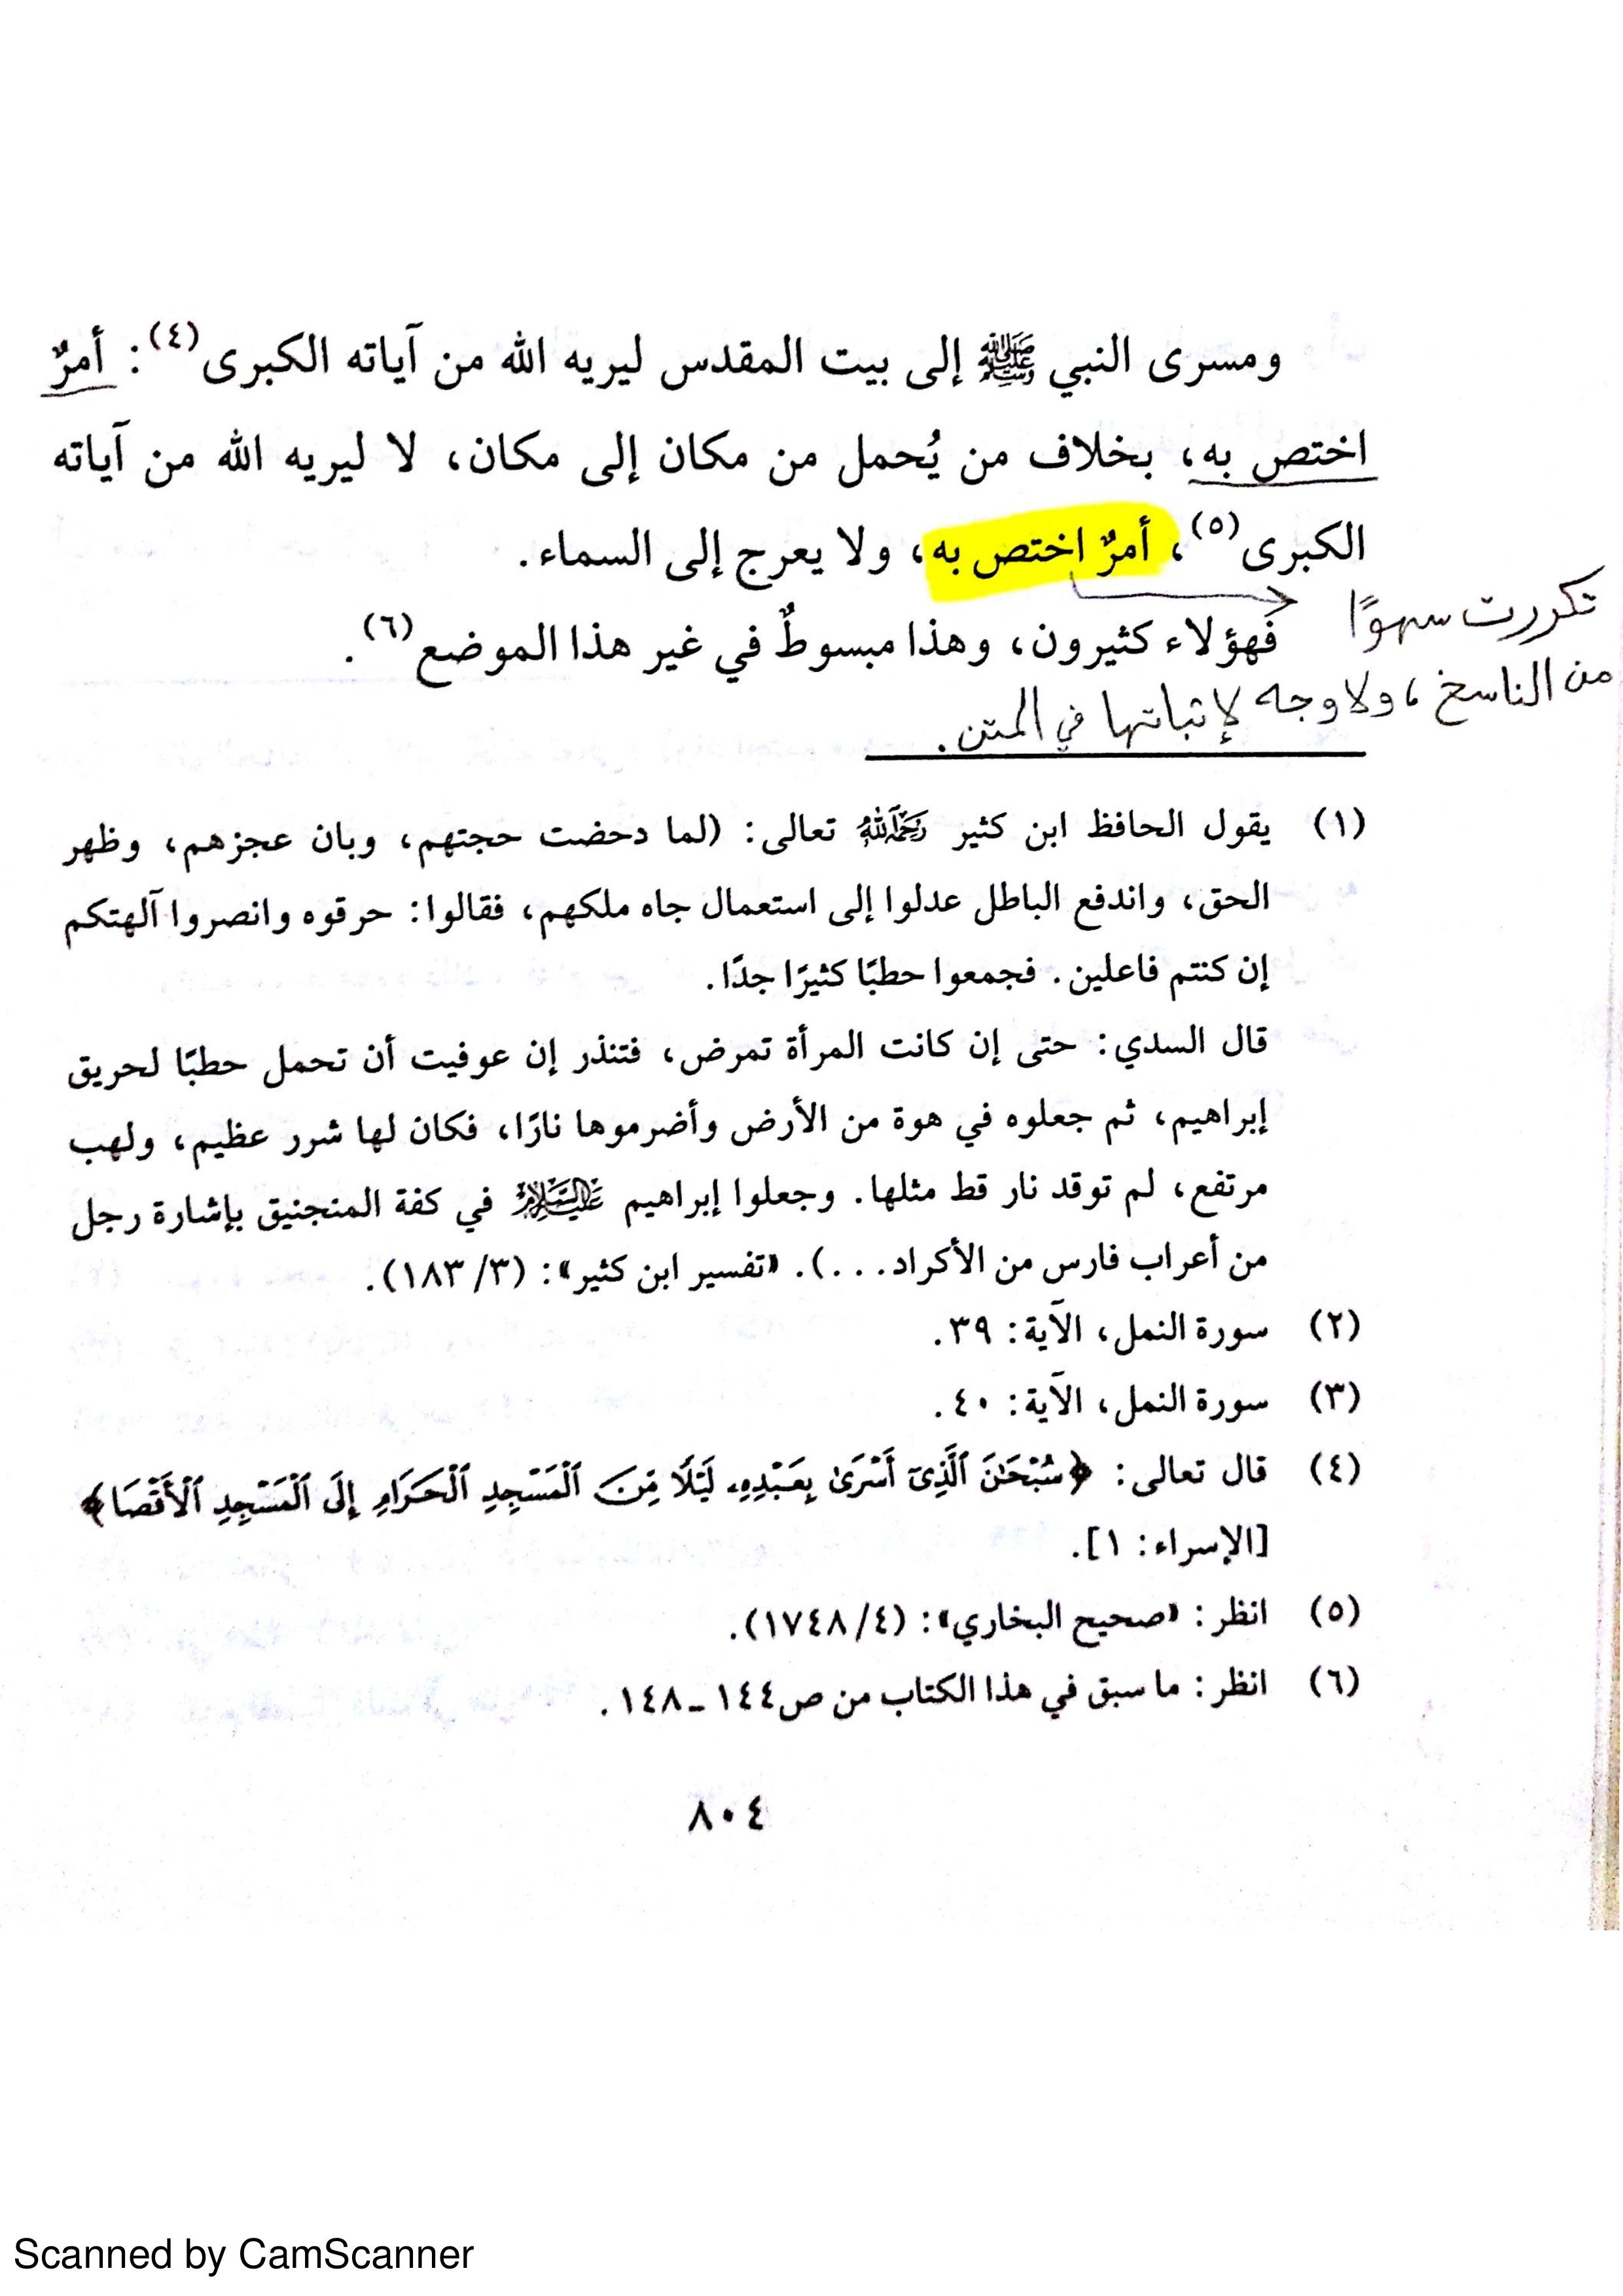 ومسرى النبي ﷺ إلى بيت المقدس ليريه الله من آياته الكبرى(٤): أمرٌ
اختص به، بخلاف من يُحمل من مكان إلى مكان، لا ليريه الله من آياته
الكبرى(٥)، أمرٌ اختص به، ولا يعرج إلى السماء.
فهؤلاء كثيرون، وهذا مبسوطٌ في غير هذا الموضع(٦).
تكررت سهوًا
من الناسخ، ولا وجه لإثباتها في المتن.
(١) يقول الحافظ ابن كثير رَحِمَهُ ٱللَّهُ تعالى: (لما دحضت حجتهم، وبان عجزهم، وظهر
الحق، واندفع الباطل عدلوا إلى استعمال جاه ملكهم، فقالوا: حرقوه وانصروا آلهتكم
إن كنتم فاعلين. فجمعوا حطبًا كثيرًا جدًا.
قال السدي: حتى إن كانت المرأة تمرض، فتنذر إن عوفيت أن تحمل حطبًا لحريق
إبراهيم، ثم جعلوه في هوة من الأرض وأضرموها نارًا، فكان لها شرر عظيم، ولهب
مرتفع، لم توقد نار قط مثلها. وجعلوا إبراهيم عَلَيْهِ ٱلسَّلَامُ في كفة المنجنيق بإشارة رجل
من أعراب فارس من الأكراد...). «تفسير ابن كثير»: (٣/ ١٨٣).
(٢) سورة النمل، الآية: ٣٩.
(٣) سورة النمل، الآية: ٤٠.
(٤) قال تعالى: ﴿سُبْحَٰنَ ٱلَّذِىٓ أَسْرَىٰ بِعَبْدِهِۦ لَيْلًا مِّنَ ٱلْمَسْجِدِ ٱلْحَرَامِ إِلَى ٱلْمَسْجِدِ ٱلْأَقْصَا﴾
[الإسراء: ١].
(٥) انظر: «صحيح البخاري»: (٤/ ١٧٤٨).
(٦) انظر: ما سبق في هذا الكتاب من ص١٤٤ ـ ١٤٨.
٨٠٤
Scanned by CamScanner